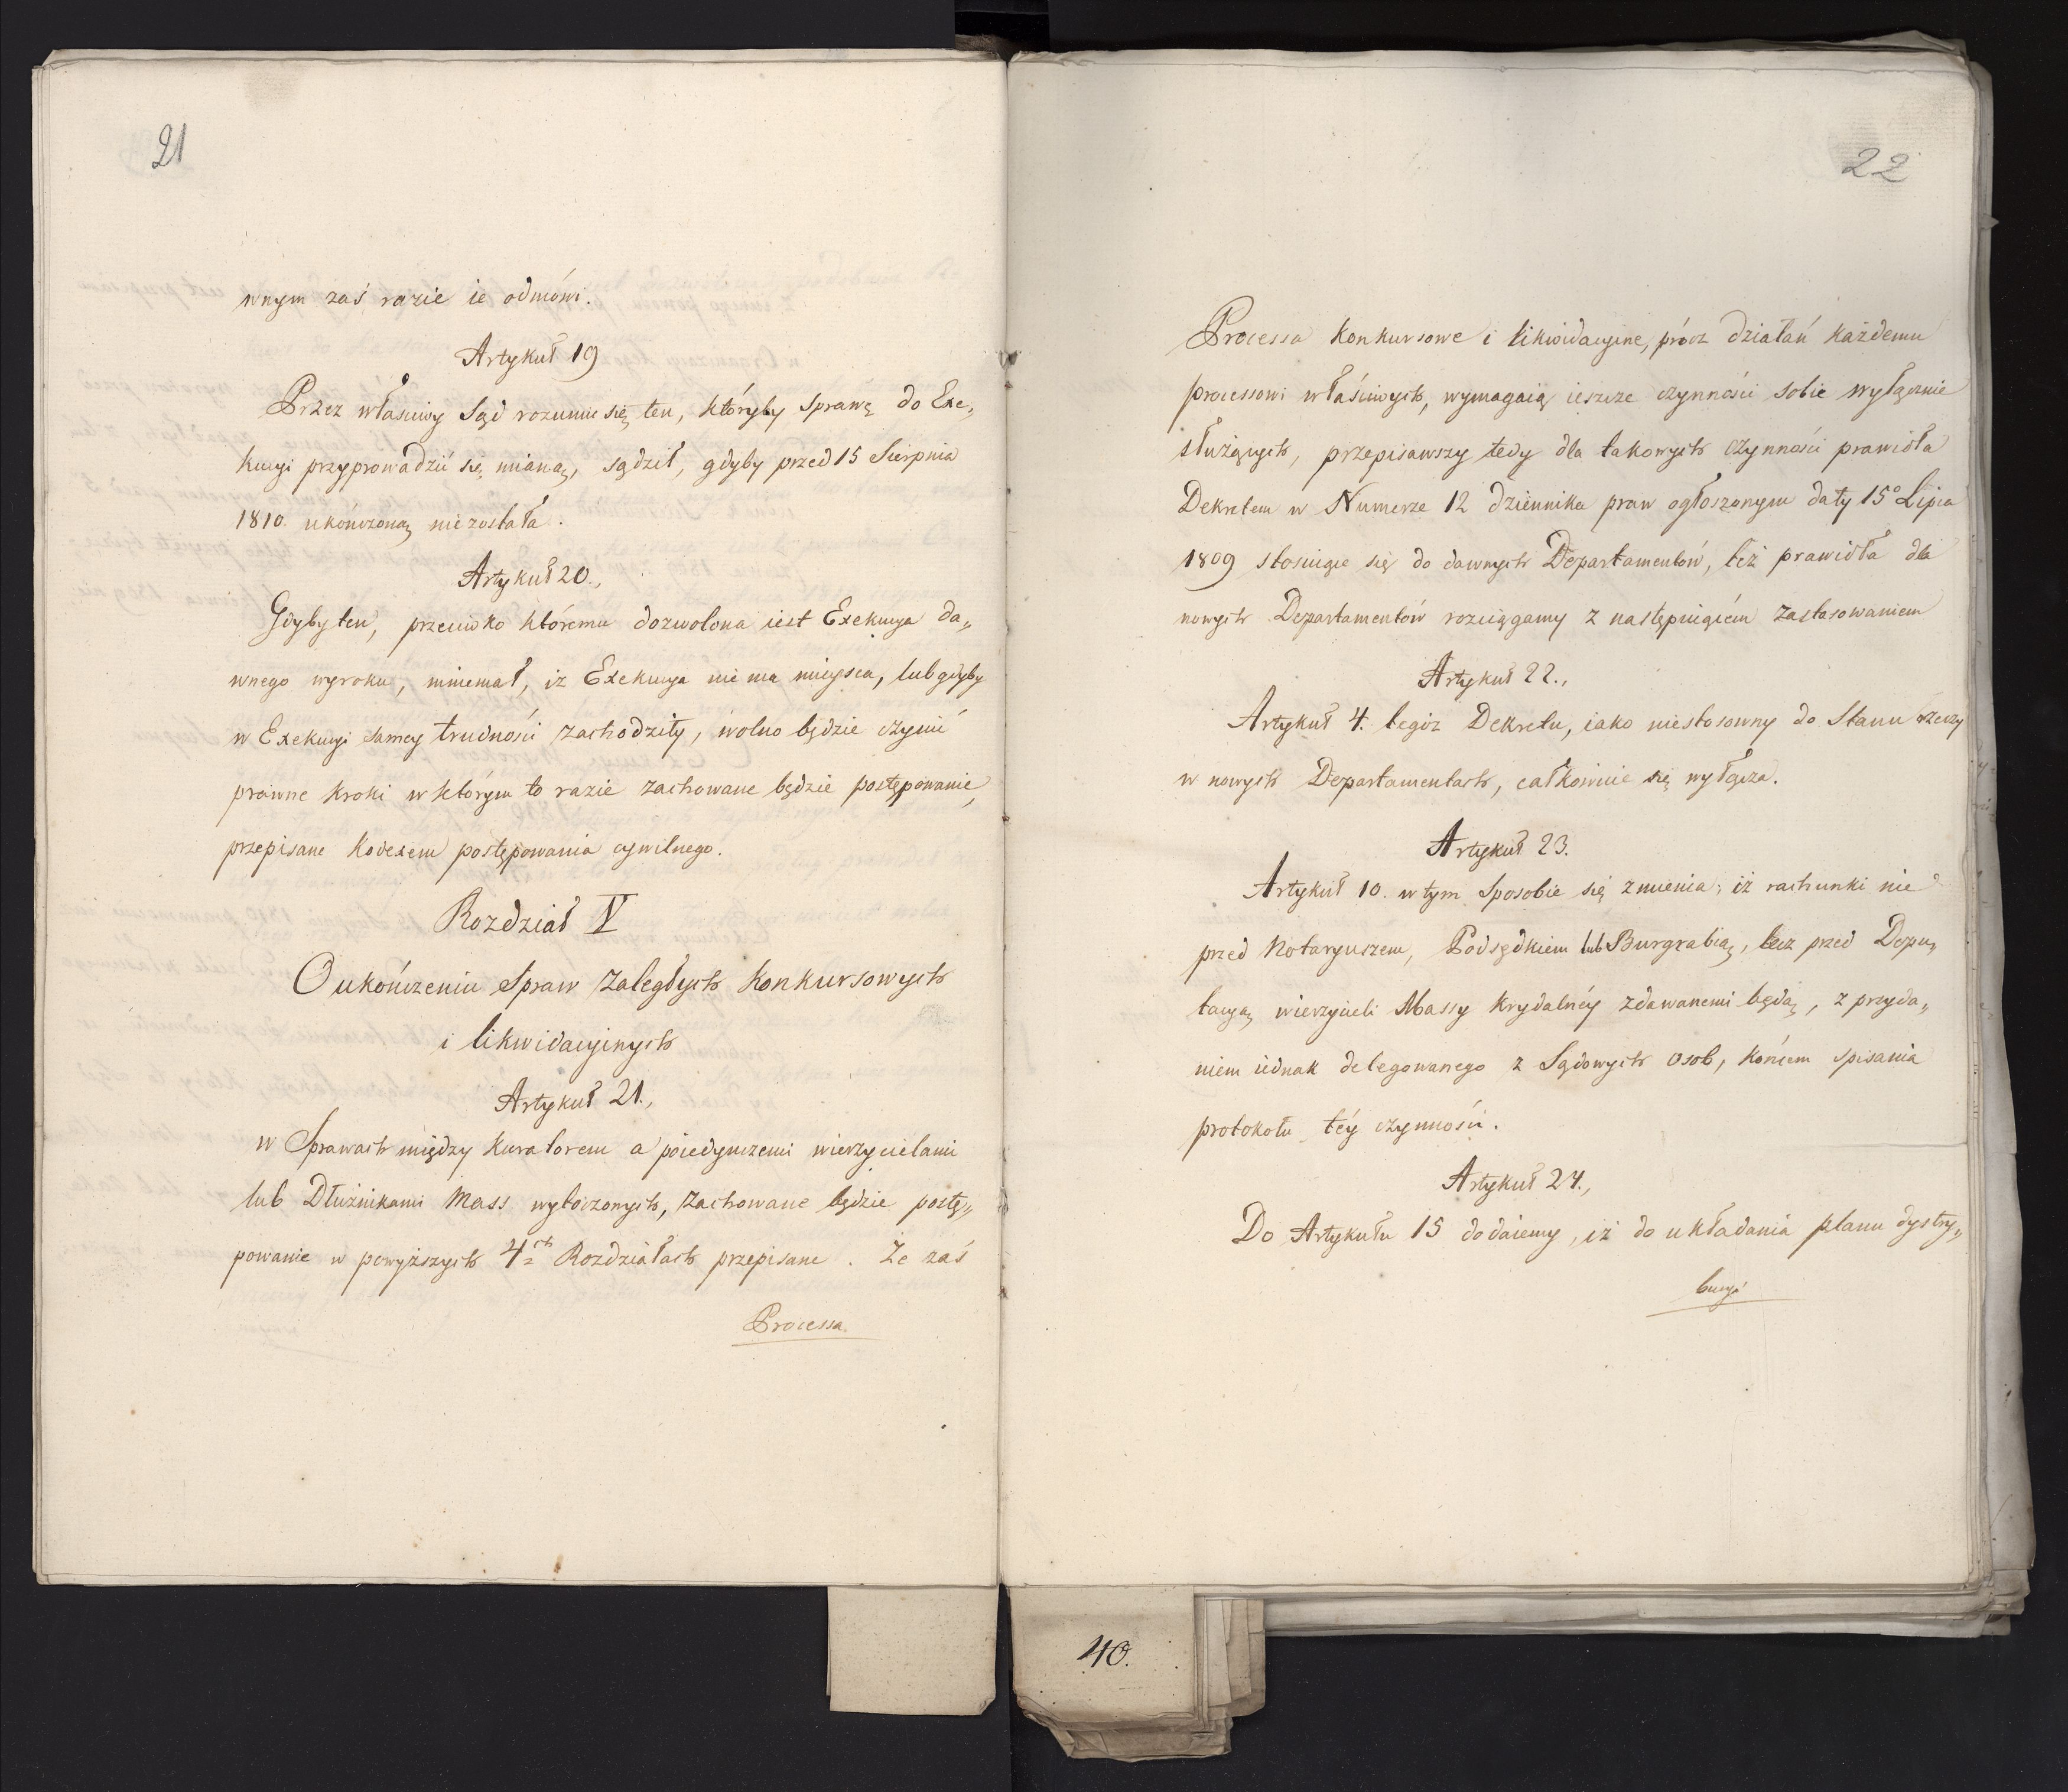 21
wnym zaś razie ie odmówi.
Artykuł 19
Przez właściwy Sąd rozumie się ten, któryby Sprawę do Exe„
kucyi przyprowadzić się mianą, sądził, gdyby przed 15 Sierpnia
1810. ukończoną niezostała.
Artykuł 20.,
Gdyby ten, przeciwko któremu dozwolona iest Exekucya da„
wnego wyroku, mniemał, iż Exekucya nie ma mieysca, lub gdyby
w Exekucyi samey trudności zachodziły, wolno będzie czynić
prawne kroki w którym to razie zachowane będzie postępowanie,
przepisane Kodexem postępowania cywilnego.
Rozdział V
O ukończeniu Spraw zaległych Konkursowych
i likwidacyinych
Artykuł 21.,
w Sprawach między Kuratorem a poiedynczemi wierzycielami
lub Dłużnikami Mass wytoczonych, zachowane będzie postę„
powanie w powyższych 4ch Rozdziałach przepisane. Że zaś
Processa
22
Processa Konkursowe i likwidacyine, prócz działań każdemu
processowi właściwych, wymagaią ieszcze czynności sobie wyłącznie
służących, przepisawszy tedy dla takowych czynności prawidła
Dekretem w Numerze 12 dziennika praw ogłoszonym daty 15o Lipca
1809 stosuiące się do dawnych Departamentów, też prawidła dla
nowych Departamentów rozciągamy z następuiącém zastosowaniem
Artykuł 22.,
Artykuł 4. tegóż Dekretu, iako niestosowny do Stanu rzeczy
w nowych Departamentach, całkowicie się wyłącza.
Artykuł 23.
Artykuł 10. w tym Sposobie się zmienia; iż rachunki nie
przed Notaryuszem, Podsędkiem lub Burgrabią, lecz przed Depu„
tacyą wierzycieli Massy Krydalnéy zdawanemi będą, z przyda„
niem iednak delegowanego z Sądowych Osob, końcem spisania
protokołu téy czynności.
Artykuł 24.,
Do Artykułu 15 dodaiemy, iż do układania planu dystry„
bucyi
40.